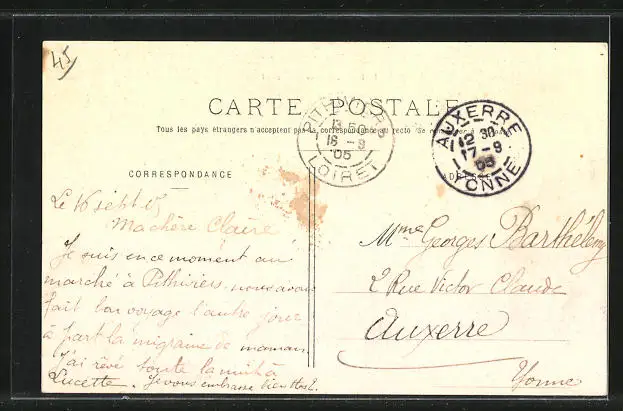 45
CARTE POSTALE
Tous les pays étrangers n'acceptent pas la correspondance au recto (Se renseigner à la poste)
PITHIVIERS
16 - 9
05
LOIRET
AUXERRE
12 30
17 - 9
05
YONNE
CORRESPONDANCE
ADRESSE
Le 16 sept 05
Ma chère Claire
Je suis en ce moment au
marché à Pithiviers. nous avons
fait bon voyage l'autre jour
à part la migraine de maman
J'ai rêvé toute la nuit à
Lucette. Je vous embrasse bien
Mme Georges Barthélemy
2 Rue Victor Claude
Auxerre
Yonne